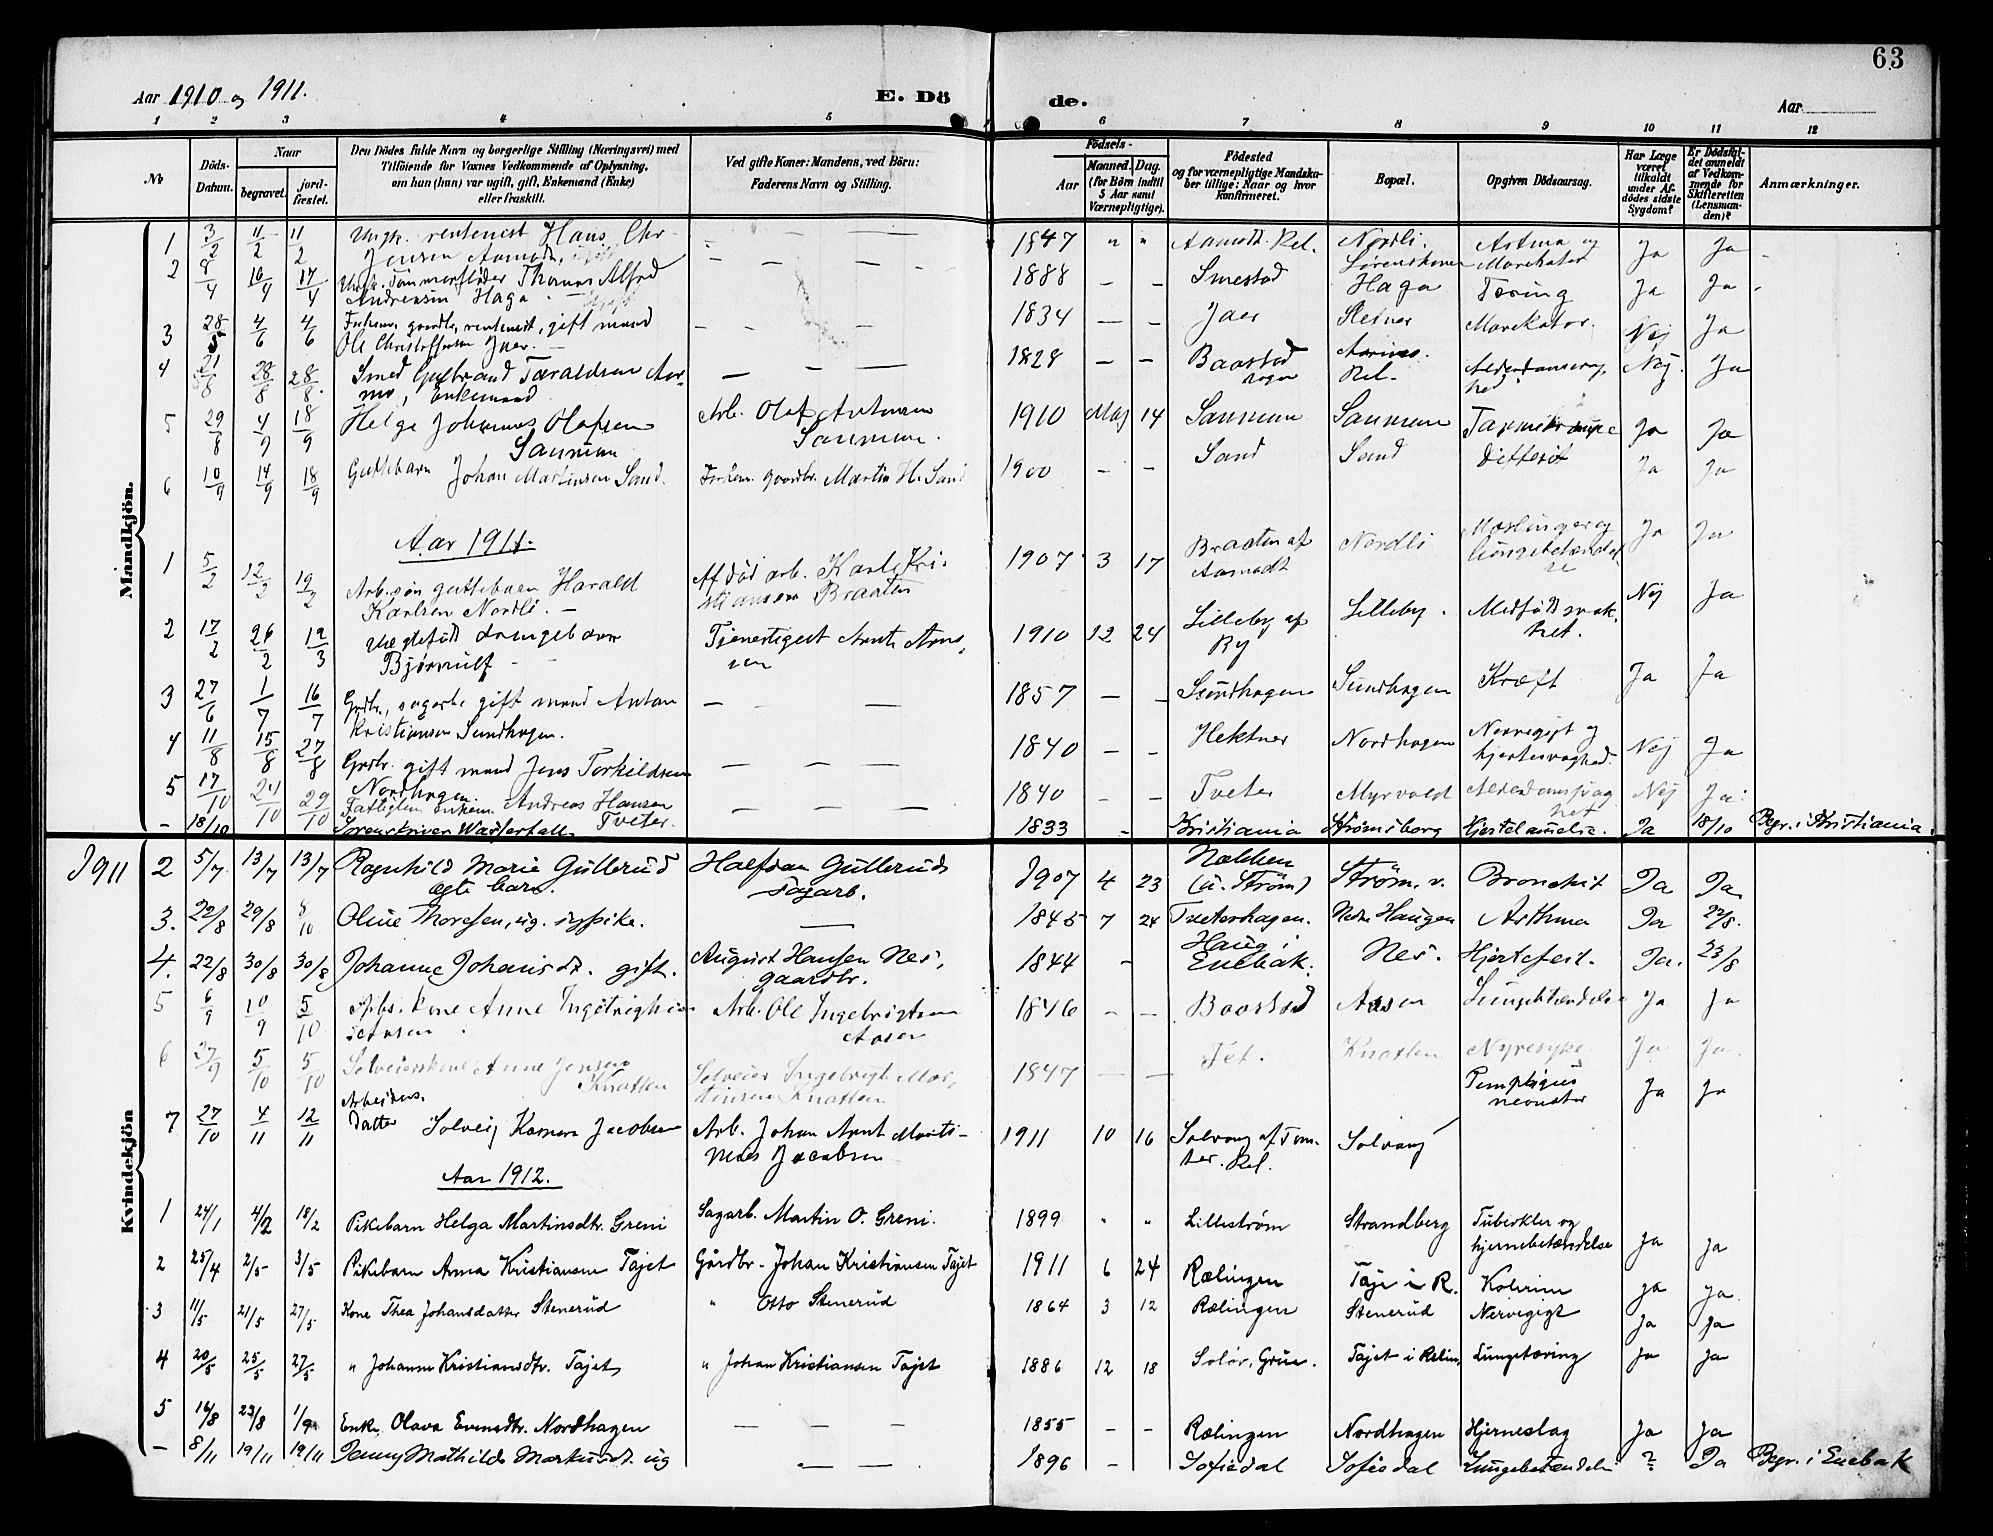 63
Aar 1910 og 1911.
E. Dö de.
Aar
1 2 3 4 5 6 7 8 9 10 11 12
No
Döds-Datum.
Naar
begravet.
jord-fæstet.
Den Dödes fulde Navn og borgerlige Stilling (Næringsvei) med
Tilföiende for Voxnes Vedkommende af Oplysning,
om hun (han) var ugift, gift, Enkemand (Enke)
eller fraskilt.
Ved gifte Koner: Mandens, ved Börn:
Faderens Navn og Stilling.
Födsels-
Aar
Maaned. Dag.
(for Börn indtil
5 Aar samt
Værnepligtige).
Födested
og for værnepligtige Mandska-
ber tillige: Naar og hvor
konfirmeret.
Bopæl.
Opgiven Dödsaarsag.
Har Læge
været
tilkaldt
under Af-
dödes sidste
Sygdom?
Er Dödsfal-
det anmeldt
af Vedkom-
mende for
Skifteretten
(Lensman-
den)?
Anmærkninger.
Mandkjön.
1 3/2 11/2 11/2 Ungk. rentenist Hans Chr. — — — 1847 " " Aamodt. Rel. Nordli. Astma og Ja Ja
Jensen Aamodt, Sørenskoven
2 8/4 16/4 17/4 Ungk. Tømmerfløder Thomas Alfred — — — 1888 — — Smestad Haga Tæring Ja Ja
Andreasen Haga
3 28/5 4/6 4/6 Forhenv. gaardbr, rentenist, gift mand — — — 1834 — — Jaer Stener Marekator. Nej Ja
Ole Christoffersen Jaer.
4 21/8 28/8 28/8. Smed Gulbrand Taraldsen Aar- — — — 1828 — — Baastad Rel. Alderdomssvag Nej. Ja
nes, Enkemand sogn hed
5 29/8 4/9 18/9 Helge Johannes Olafsen Arb. Olaf Antonsen 1910 Maj 14 Sannum Sannum Tarmkrampe Ja Ja
Sannum Sannum.
6 10/9 14/9 18/9 Guttebarn Johan Martinsen Sand. Forhen. gaardbr. Martin H. Sand 1900 — — Sand Sand Difterit Ja Ja
Aar 1911.
1 5/2 12/2 19/2 Arb. søn guttebarn Harald Afdød arb. Karl Kri- 1907 3 17 Braaten af Nordli Mæslinger og Ja Ja
Karlsen Nordli. — stiansen Braaten Aamodt lungebetændel se
2 17/2 26/2 12/3 uægtefødt drengebarn Tjenestigut Arnt Arne, 1910 12 24 Lilleby af Lilleby. Medfødt svak- Nej Ja
Bjørnulf — sen Ry het.
3 27/6 1/7 16/7 Grdbr., sagarb. gift mand Anton — — 1857 — — Sundhagen Sundhagen Kræft Ja Ja
Kristiansen Sundhagen.
4 11/8 15/8 27/8 Grdbr. gift mand Jens Torkildsen — — — 1840 — — Hektner Nordhagen Nervegigt og Nej Ja
Nordhagen. hjertesvaghed.
5 17/10 24/10 29/10 Fattiglem enkem. Andreas Hansen — — — 1840 — — Tveter Myrvold Alderdomssvag Nej Ja
Tveter. het
– 18/10 Sorenskriver Westerfall. 1833 – Kristiania Strømsborg Hjertelammelse. Ja 18/10 Begr. i Kristiania.
1911
Kvindekjön
2 5/7 13/7 13/7 Ragnhild Marie Gullerud Halfdan Gullerud 1907 4 23 Nakken Strøm. v. Bronchit Ja Ja
egte barn. sagarb. (u. Strøm)
3. 22/8 29/8 8/10 Oline Thoresen, ug. sypike. — 1845 7 24 Tveterhagen. Nedre Haugen Asthma Ja 22/8.
4. 22/8 30/8 30/8 Johanne Johansdt. gift. August Hansen Nes, 1844 – Haug i Nes. Hjertefeil. Ja. 23/8
gaardbr. Enebak.
5 6/9 10/9 5/10 Arbs. kone Anne Ingebrigt Arb. Ole Ingebrigtsen 1846 — — Baastad Aasen Lungebetændelse Ja Ja
Aasen Aasen
6 27/9 5/10 5/10 Selveierskone Anne Jensen Selveier Ingebrigt Mor, 1847 — — Fet. Knatten Nyresyke Ja Ja
Knatten tinsen Knatten
7 27/10 4/11 12/11 Arbeiders. Datter Solveig Karense Jacobsen Arb. Johan Arnt Marti- 1911 10 16 Solvang af Tom- Solvang Pemphigus neonator Ja Ja
nius Jacobsen ter. Rel.
Aar 1912.
1 24/1 4/2 18/2 Pikebarn Helga Martinsdtr. Greni Sagarb. Martin O. Greni. 1899 " " Lillestrøm Strandberg Tuberkler og Ja Ja
hjernebetændelse
2 25/4 2/5 3/5 Pikebarn Anna Kristiansen Tajet Gårdbr. Johan Kristiansen Tajet 1911 6 24 Rælingen Taje i R. Kolerine Ja Ja.
3 11/5 21/5 27/5 Kone Thea Johansdatter Stenerud " Otto Stenerud 1864 3 12 Rælingen Stenerud Nervegigt Ja Ja
4 20/5 25/5 27/5 " Johanne Kristiansdtr. Tajet " Johan Kristiansen Tajet 1886 12 18 Solør, Grue. Tajet i Reling. Lungetæring Ja Ja
5 16/8 23/8 1/9 Enke Olava Evensdtr. Nordhagen — — — 1855 – – Rælingen Nordhagen Hjerneslag Ja Ja
– 8/11 19/11 19/11 Jenny Mathilde Markusdt. ug — — 1896 – Sofiedal Sofiedal Lungebetændelse ? Ja Begr. i Enebak